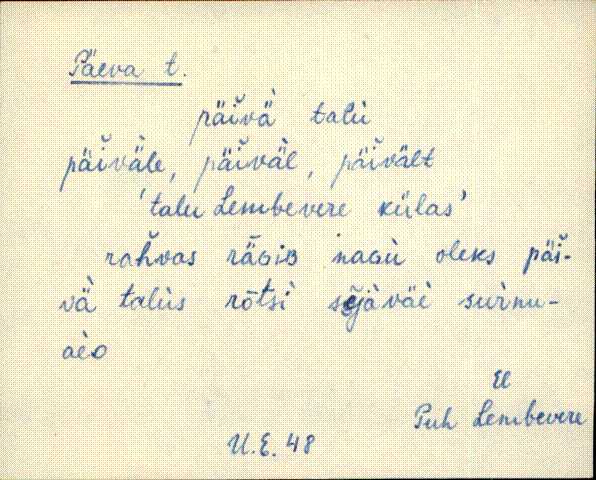 Päeva t.
päi̮vä̀ talù
päi̮vä̀le, päi̮vä̀l, päi̮vält
'talu Lembevere külas'
rahvas räɢiʙ naɢù oleks päi̮-
vä̀ talùs rōtsì sõjàväè surnu-
aèo
El
Puh Lembevere
U.E. 48